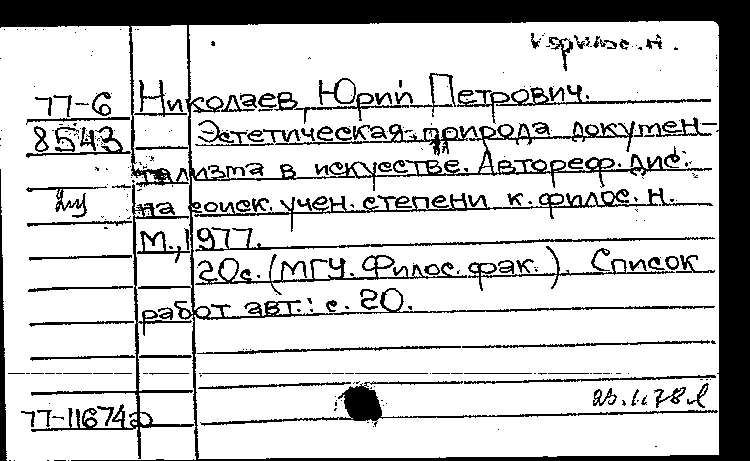 к.филос.н.
77-6 Николаев, Юрий Петрович.
8543 Эстетическая природа докумен-
тализма в искусстве. Автореф. дис.
на соиск. учен. степени к. филос. н.
М., 1977.
20с. (МГУ. Филос. фак.). Список
работ авт.: с. 20.
77-11674а
23.1.78